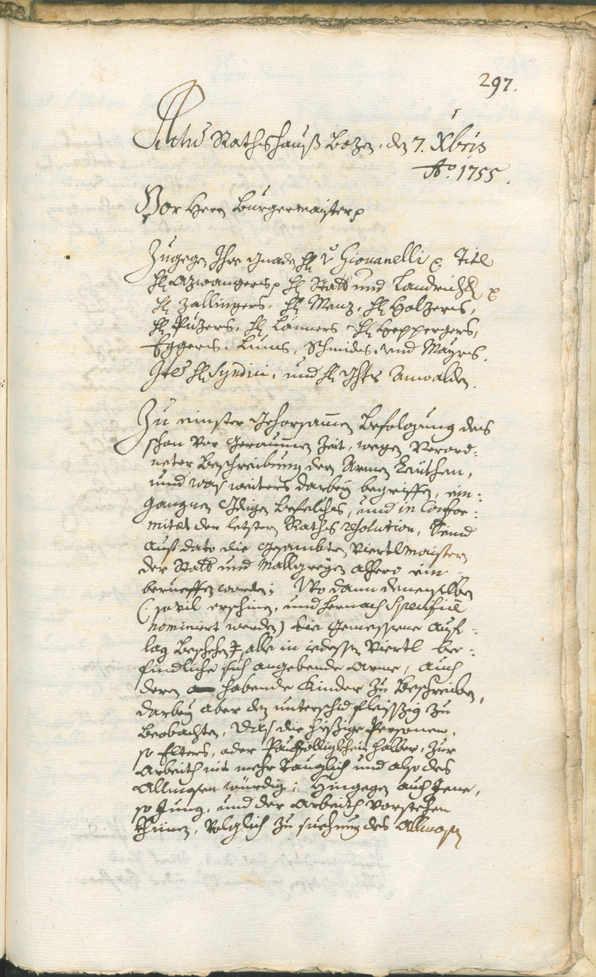 297.
Actus Rathshauß Bozen, den 7. Xbris
Ao. 1755.
Vor Herrn Burgermaister
Zugegen Ihro Gnaden H v Giovanelli Titl
H Azwangers, H Statt und Landrichter
H Zallingers, H Menz, H Holzers,
H Puzers, H Lanners H Heppergers,
Eggers, Lums, Schmids, und Mayrs.
Item H Syndici, und H Anwalden.
Zu einster gehorsammen Befolgung deß
schon vor geraumer Zeit, wegen Verord-
neter Beschreibung der Armen Leuthen,
und was weiters darbey begriffen, ein-
gangnen Befelches, und in Confor-
mitet der lezteren Raths resolution, seind
auf dato die gesambte Viertlmaister
der Statt und Mallgreyen alhero ein-
berueffen worden; Wo dann denenselben
(so vil erschinen, und hernach Specificé
nominiert werden) die gemessene Auf-
lag beschehen, alle in iedessen Viertl be-
findliche sich angebende Arme, auch
deren habende Kinder zu beschreiben,
darbey aber den unterschid fleissig zu
beobachten, daß die Persohnen,
so Elters, oder halber, zur
Arbeith nit mehr tauglich und also des
Allmosen würdig; hingegen auch jene,
so Jung, und der Arbeith vorstehen
khönen, volglich zu suechung des Allmosen